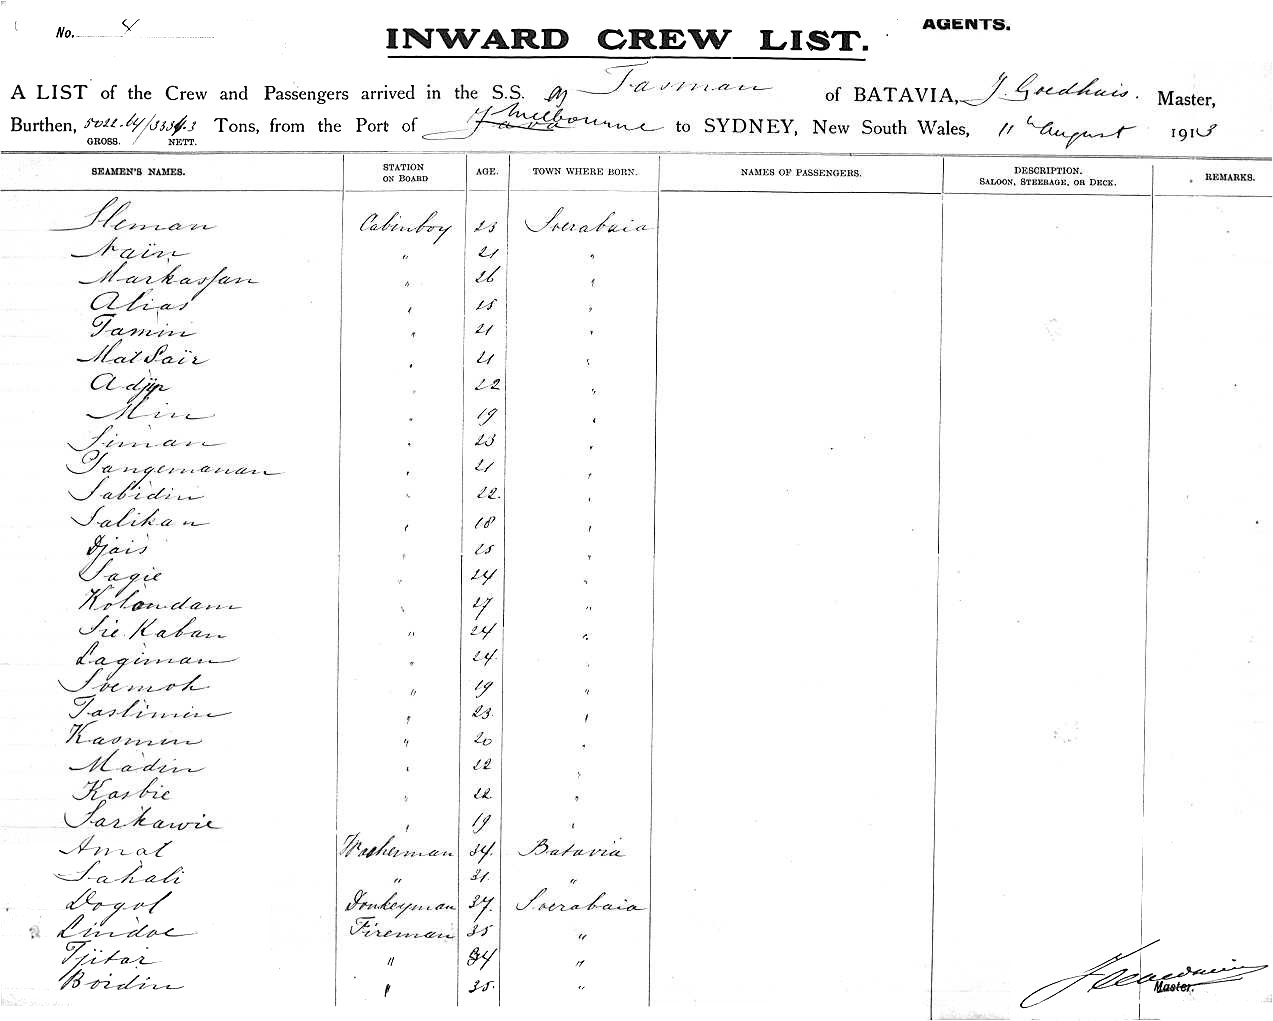 No. 4
AGENTS.
INWARD CREW LIST.
A LIST of the Crew and Passengers arrived in the S.S. Tasman of BATAVIA, J. Goedhuis. Master,
Burthen, Tons, from the Port of Java Melbourne to SYDNEY, New South Wales, 11th August 1913
GROSS. NETT.
SEAMEN'S NAMES. STATION ON BOARD AGE. TOWN WHERE BORN. NAMES OF PASSENGERS. DESCRIPTION. SALOON, STEERAGE, OR DECK. REMARKS.
Sleman Cabinboy 23 Soerabaia
Naïn " 21 "
Markassan " 26 "
Alias " 18 "
Tamin " 21 "
Mat Saïr " 21 "
Adjip " 22 "
Min " 19 "
Siman " 23 "
Tangemanan " 21 "
Sabidin " 22 "
Salikan " 18 "
Djais " 25 "
Sagie " 24 "
Kolandam " 27 "
Sie Kaban " 24 "
Lagiman " 24 "
Soemoh " 19 "
Taslimin " 23 "
Kasmin " 20 "
Madin " 22 "
Kasbie " 22 "
Sarkawie " 19 "
Amat Wacherman 34 Batavia
Sahali " 31 "
Dogol Donkeyman 37 Soerabaia
Lindoe Fireman 35 "
Tjitar " 34 "
Boidin " 35 "
Master.